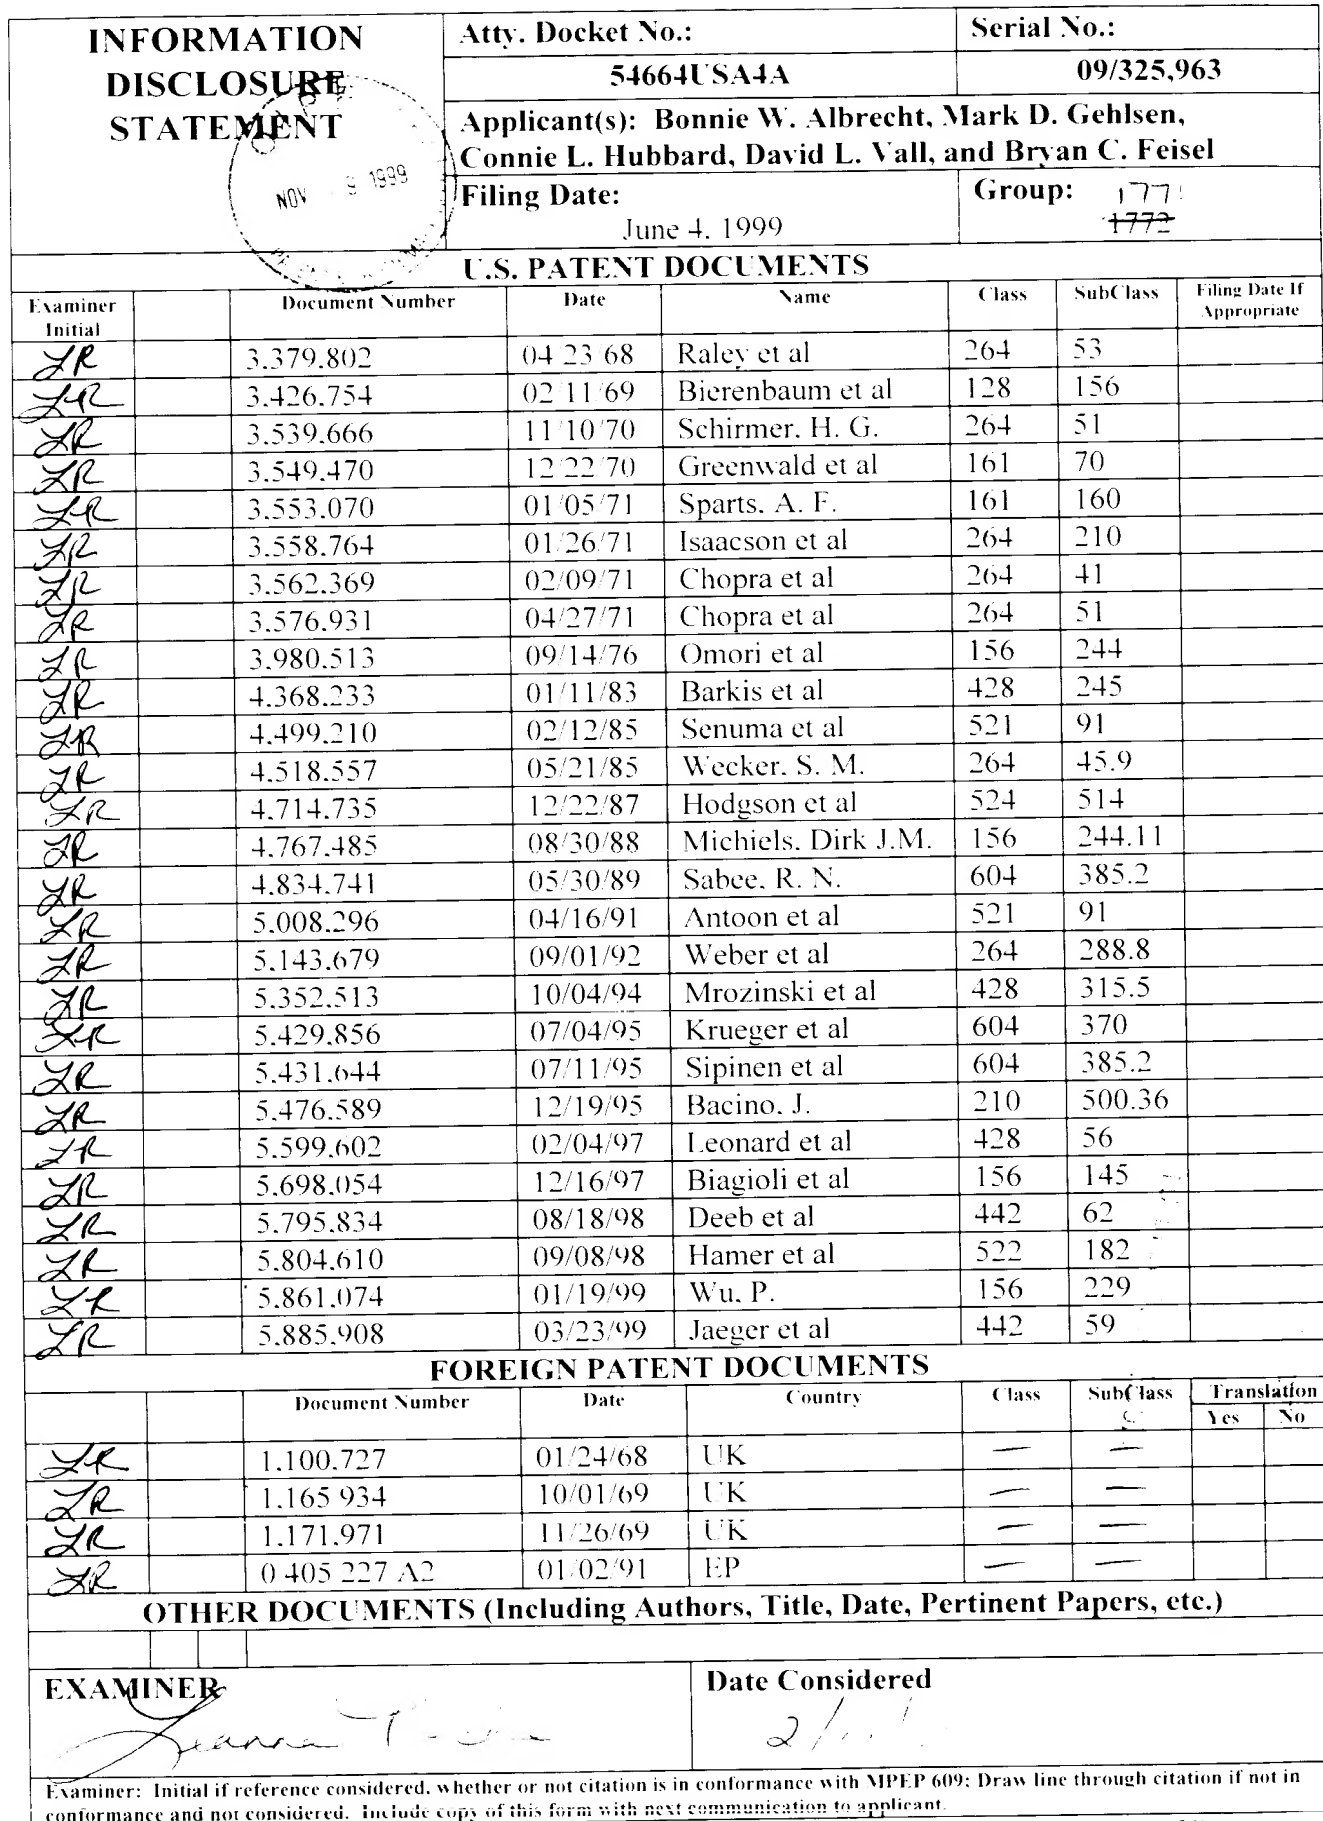 INFORMATION DISCLOSURE STATEMENT
Atty. Docket No.:
54664USA4A
Serial No.:
09/325,963
Applicant(s): Bonnie W. Albrecht, Mark D. Gehlsen,
Connie L. Hubbard, David L. Vall, and Bryan C. Feisel
NOV 9 1999
Filing Date:
June 4, 1999
Group:
1772
U.S. PATENT DOCUMENTS
Examiner Initial Document Number Date Name Class SubClass Filing Date If Appropriate
LR 3.379.802 04 23 68 Raley et al 264 53
LR 3.426.754 02 11/69 Bierenbaum et al 128 156
LR 3.539.666 11 10/70 Schirmer. H. G. 264 51
LR 3.549.470 12/22/70 Greenwald et al 161 70
LR 3.553.070 01/05/71 Sparts. A. F. 161 160
LR 3.558.764 01/26/71 Isaacson et al 264 210
LR 3.562.369 02/09/71 Chopra et al 264 41
LR 3.576.931 04/27/71 Chopra et al 264 51
LR 3.980.513 09/14/76 Omori et al 156 244
LR 4.368.233 01/11/83 Barkis et al 428 245
LR 4.499.210 02/12/85 Senuma et al 521 91
LR 4.518.557 05/21/85 Wecker. S. M. 264 45.9
LR 4.714.735 12/22/87 Hodgson et al 524 514
LR 4.767.485 08/30/88 Michiels. Dirk J.M. 156 244.11
LR 4.834.741 05/30/89 Sabee. R. N. 604 385.2
LR 5.008.296 04/16/91 Antoon et al 521 91
LR 5.143.679 09/01/92 Weber et al 264 288.8
LR 5.352.513 10/04/94 Mrozinski et al 428 315.5
LR 5.429.856 07/04/95 Krueger et al 604 370
LR 5.431.644 07/11/95 Sipinen et al 604 385.2
LR 5.476.589 12/19/95 Bacino. J. 210 500.36
LR 5.599.602 02/04/97 Leonard et al 428 56
LR 5.698.054 12/16/97 Biagioli et al 156 145
LR 5.795.834 08/18/98 Deeb et al 442 62
LR 5.804.610 09/08/98 Hamer et al 522 182
LR 5.861.074 01/19/99 Wu. P. 156 229
LR 5.885.908 03/23/99 Jaeger et al 442 59
FOREIGN PATENT DOCUMENTS
Document Number Date Country Class SubClass Translation
Yes No
LR 1.100.727 01/24/68 UK — —
LR 1.165 934 10/01/69 UK — —
LR 1.171.971 11/26/69 UK — —
LR 0 405 227 A2 01/02/91 EP — —
OTHER DOCUMENTS (Including Authors, Title, Date, Pertinent Papers, etc.)
EXAMINER
Date Considered
Leanna
Examiner: Initial if reference considered, whether or not citation is in conformance with MPEP 609; Draw line through citation if not in
conformance and not considered. Include copy of this form with next communication to applicant.